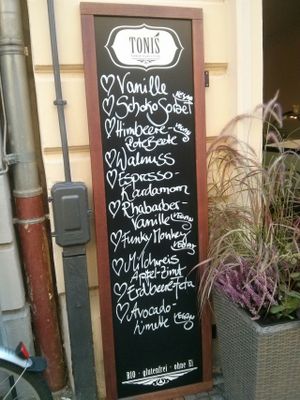 TONIS
Vanille
Schoko Sorbet vegan
Himbeere-
Rote Beete vegan
Walnuss
Espresso-
Kardamom
Rhabarber-
Vanille vegan
Funky Monkey
vegan
Milchreis
Apfel-Zimt
Erdbeere-Feta
Avocado-
Limette vegan
BIO - glutenfrei - ohne Ei